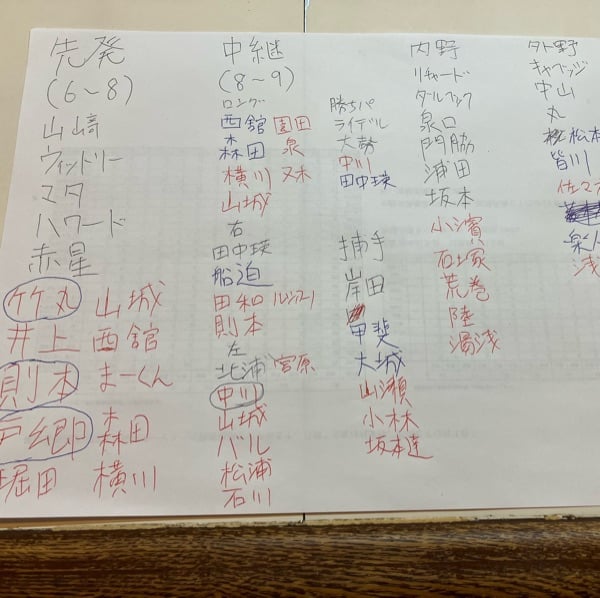 先発
(6~8)
山崎
ウィットリー
マタ
ハワード
赤星
竹丸 山城
井上 西舘
則本 まーくん
戸郷 森田
堀田 横川
中継
(8~9)
ロング
西舘 園田
森田 泉
横川 又木
山城
右
田中瑛
船迫
田和 ルシアノ
則本
左
北浦 宮原
中川
山城
バル
松浦
石川
勝ちパ
ライデル
大勢
中川
田中瑛
捕手
岸田
甲斐
大城
山瀬
小林
坂本達
内野
リチャード
ダルベック
泉口
門脇
浦田
坂本
小濱
石塚
荒巻
陸
湯浅
外野
キャベッジ
中山
丸
松本
皆川
佐々木
浅